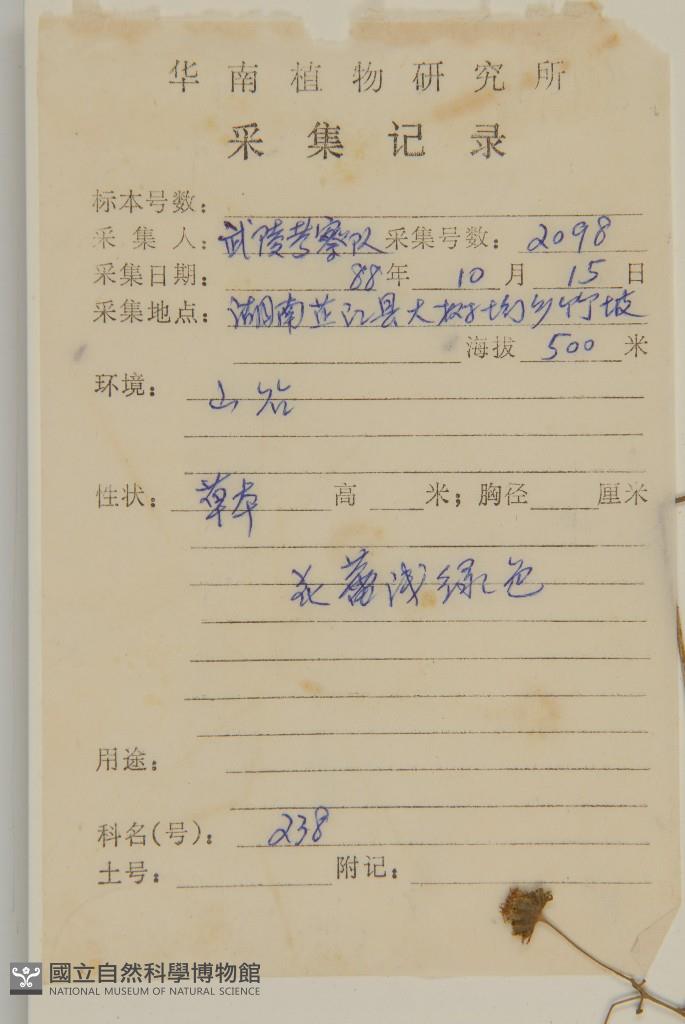 华南植物研究所
采集记录
标本号数：
采集人：武陵考察队 采集号数：2098
采集日期：88年10月15日
采集地点：湖南芷江县大树坳乡竹坡
海拔 500 米
环境：山谷
性状：草本 高 米；胸径 厘米
花蕾浅绿色
用途：
科名(号)：238
土号： 附记：
國立自然科學博物館
NATIONAL MUSEUM OF NATURAL SCIENCE